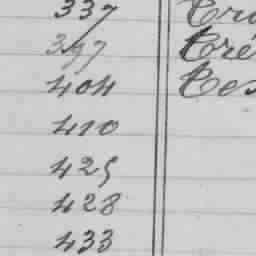 337 Cro
397 Cré
404 Ces
410
425
428
433